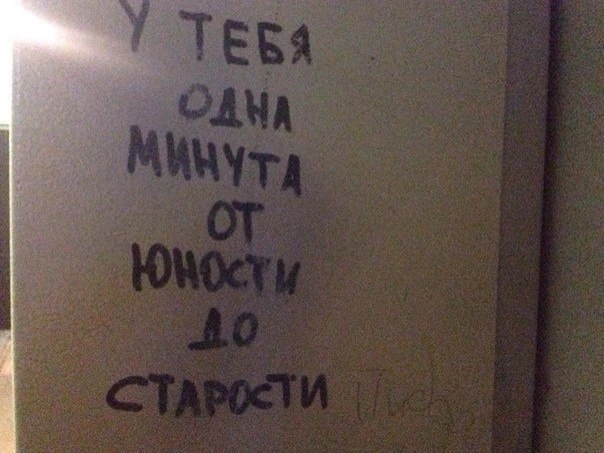 У ТЕБЯ
ОДНА
МИНУТА
ОТ
ЮНОСТИ
ДО
СТАРОСТИ